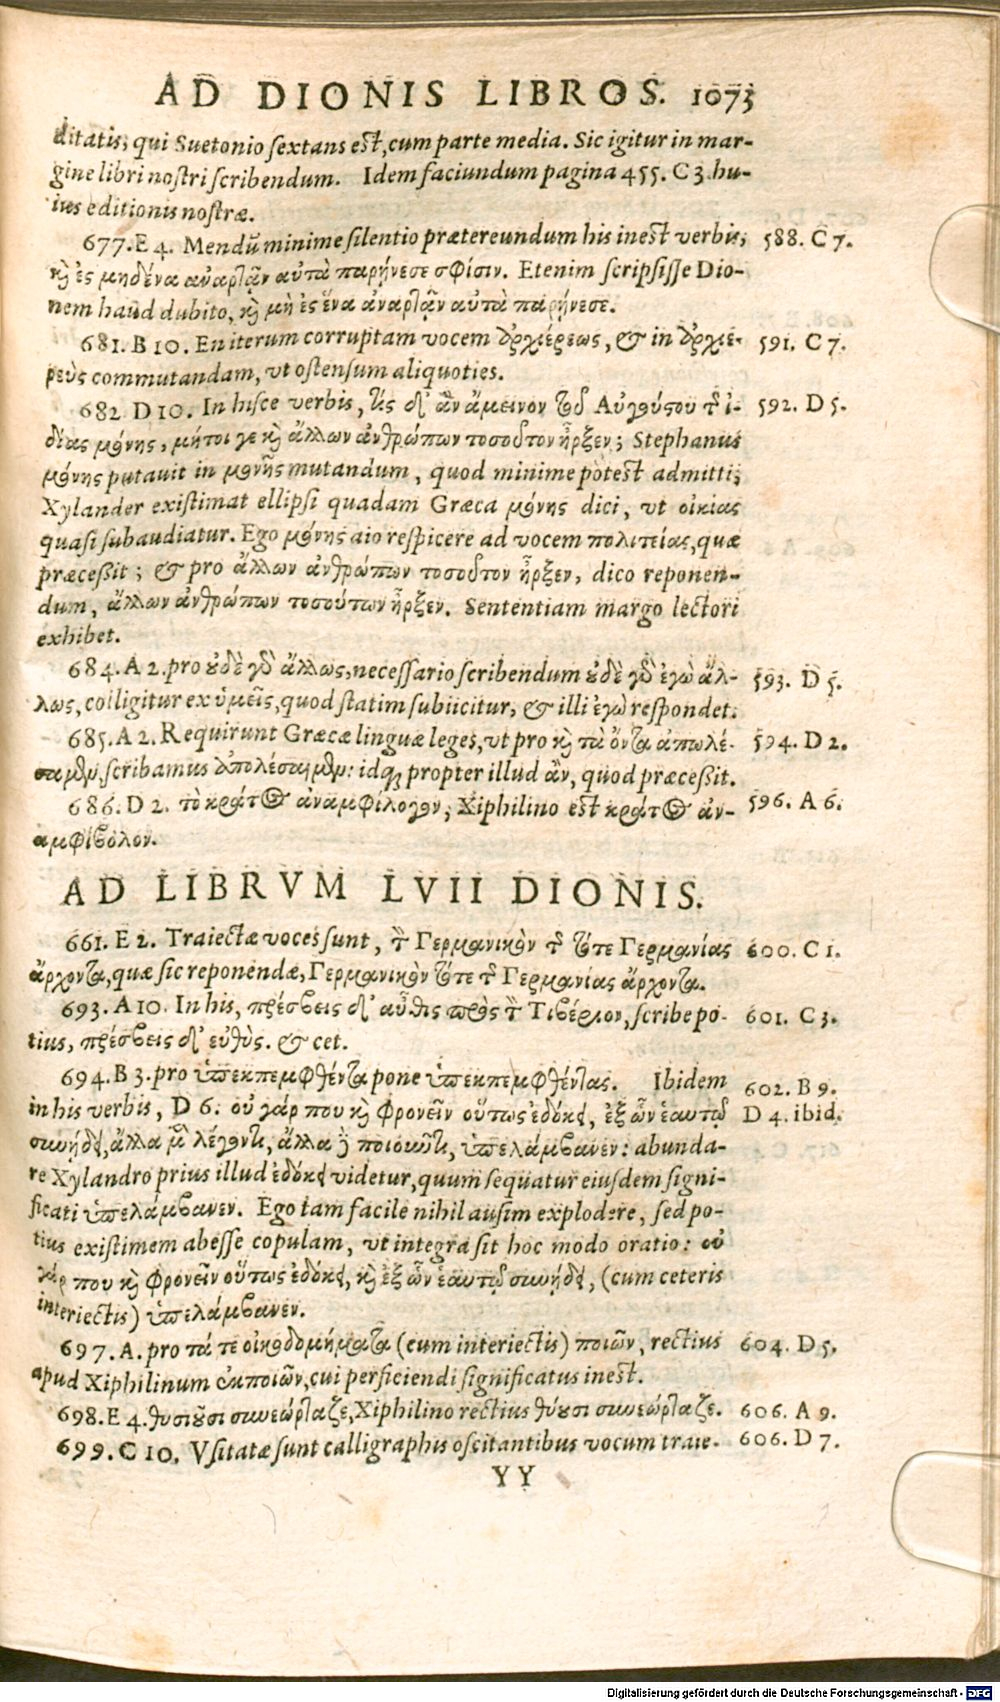 AD DIONIS LIBROS. 1073
ditatis; qui Suetonio sextans est, cum parte media. Sic igitur in mar-
gine libri nostri scribendum. Idem faciundum pagina 455. C 3. hu-
ius editionis nostræ.
677. E 4. Mendũ minime silentio prætereundum his inest verbis; 588. C 7.
καὶ ἐς μηδένα ἀναρτᾷν αὐτὰ παρῄνεσε σφίσιν. Etenim scripsisse Dio-
nem haud dubito, καὶ μὴ ἐς ἕνα ἀναρτᾷν αὐτὰ παρῄνεσε.
681. B 10. En iterum corruptam vocem ἀρχιέρεως, & in ἀρχιε- 591. C 7.
ρεὺς commutandam, vt ostensum aliquoties.
682 D 10. In hisce verbis, τίς δ' ἂν ἄμεινον τοῦ Αὐγούστου τῆς ἰ- 592. D 5.
δίας μόνης, μήτοι γε καὶ ἄλλων ἀνθρώπων τοσοῦτον ἦρξεν; Stephanus
μόνης putauit in μονῆς mutandum, quod minime potest admitti;
Xylander existimat ellipsi quadam Græca μόνης dici, vt οἰκίας
quasi subaudiatur. Ego μόνης aio respicere ad vocem πολιτείας, quæ
præcessit; & pro ἄλλων ἀνθρώπων τοσοῦτον ἦρξεν, dico reponen-
dum, ἄλλων ἀνθρώπων τοσούτων ἦρξεν. Sententiam margo lectori
exhibet.
684. A 2. pro οὐδὲ γὰρ ἄλλως, necessario scribendum οὐδὲ γὰρ ἐγὼ ἄλ- 593. D 5.
λως, colligitur ex ὑμεῖς, quod statim subiicitur, & illi ἐγὼ respondet.
685. A 2. Requirunt Græcæ linguæ leges, vt pro καὶ τὰ ὄντα ἀπωλέ- 594. D 2.
σαμεν, scribamus ἀπολέσαιμεν: idq; propter illud ἂν, quod præcessit.
686. D 2. τὸ κράτος ἀναμφίλογον; Xiphilino est κράτος ἀν- 596. A 6.
αμφίβολον.
AD LIBRVM LVII DIONIS.
661. E 2. Traiectæ voces sunt, τὸν Γερμανικὸν τῆς τότε Γερμανίας 600. C 1.
ἄρχοντα, quæ sic reponendæ, Γερμανικὸν τότε τῆς Γερμανίας ἄρχοντα.
693. A 10. In his, πρέσβεις δ' αὖθις πρὸς τὸν Τιβέριον, scribe po- 601. C 3.
tius, πρέσβεις δ' εὐθὺς. & cet.
694. B 3. pro ὑπεκπεμφθέντα pone ὑπεκπεμφθέντας. Ibidem 602. B 9.
in his verbis, D 6: οὐ γάρ που καὶ φρονεῖν οὕτως ἐδόκει, ἐξ ὧν ἑαυτῷ D 4. ibid.
συνῄδει, ἄλλα μὲν λέγοντι, ἄλλα δὲ ποιοῦντι, ὑπελάμβανεν: abunda-
re Xylandro prius illud ἐδόκει videtur, quum sequatur eiusdem signi-
ficati ὑπελάμβανεν. Ego tam facile nihil ausim explodere, sed po-
tius existimem abesse copulam, vt integra sit hoc modo oratio: οὐ
γάρ που καὶ φρονεῖν οὕτως ἐδόκει, καὶ ἐξ ὧν ἑαυτῷ συνῄδει, (cum ceteris
interiectis) ὑπελάμβανεν.
697. A. pro τά τε οἰκοδομήματα (cum interiectis) ποιῶν, rectius 604. D 5.
apud Xiphilinum ἐκποιῶν, cui perficiendi significatus inest.
698. E 4. θυσιοῦσι συνεώρταζε, Xiphilino rectius θύουσι συνεώρταζε. 606. A 9.
699. C 10. Vsitatæ sunt calligraphis oscitantibus vocum traie- 606. D 7.
YY
Digitalisierung gefördert durch die Deutsche Forschungsgemeinschaft - DFG